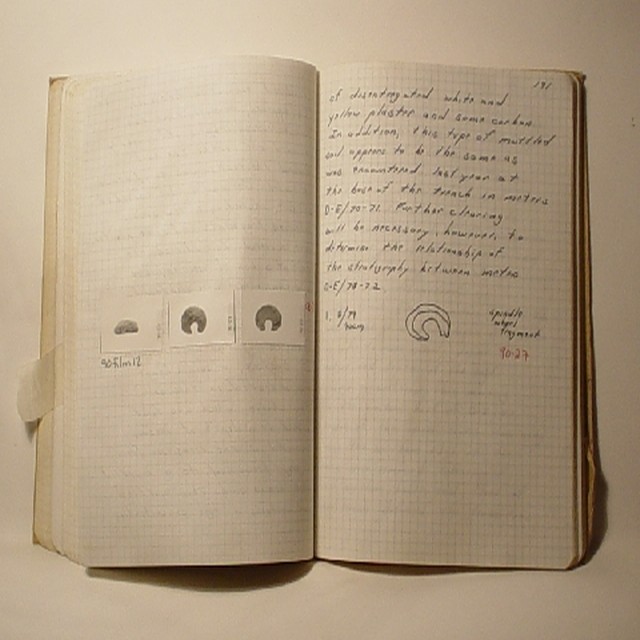 90-film12
131
of disentegrated white and
yellow plaster and some carbon.
In addition, this type of mottled
soil appears to be the same as
was encountered last year at
the base of the trench in meters
D-E/70-72. Further clearing
will be necessary, however, to
determine the relationship of
the stratigraphy between meters
D-E/70-72.
1.
spindle
whorl
fragment
90-27